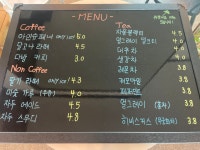 - MENU -
Coffee
아인슈페너 ONLY ICE 4.5
달고나 라떼 4.5
더치 커피 4.0
Non Coffee
딸기 라떼 ONLY ICE 4.3
미숫 가루 4.0
자두 에이드 4.5
자두 스무디 4.8
Tea
자몽블랙티 4.0
얼그레이 밀크티 4.0
대추차 4.5
생강차 4.0
레몬차 3.8
캐모마일 3.8
페퍼민트 3.8
얼그레이 (홍차) 3.8
히비스커스 3.8